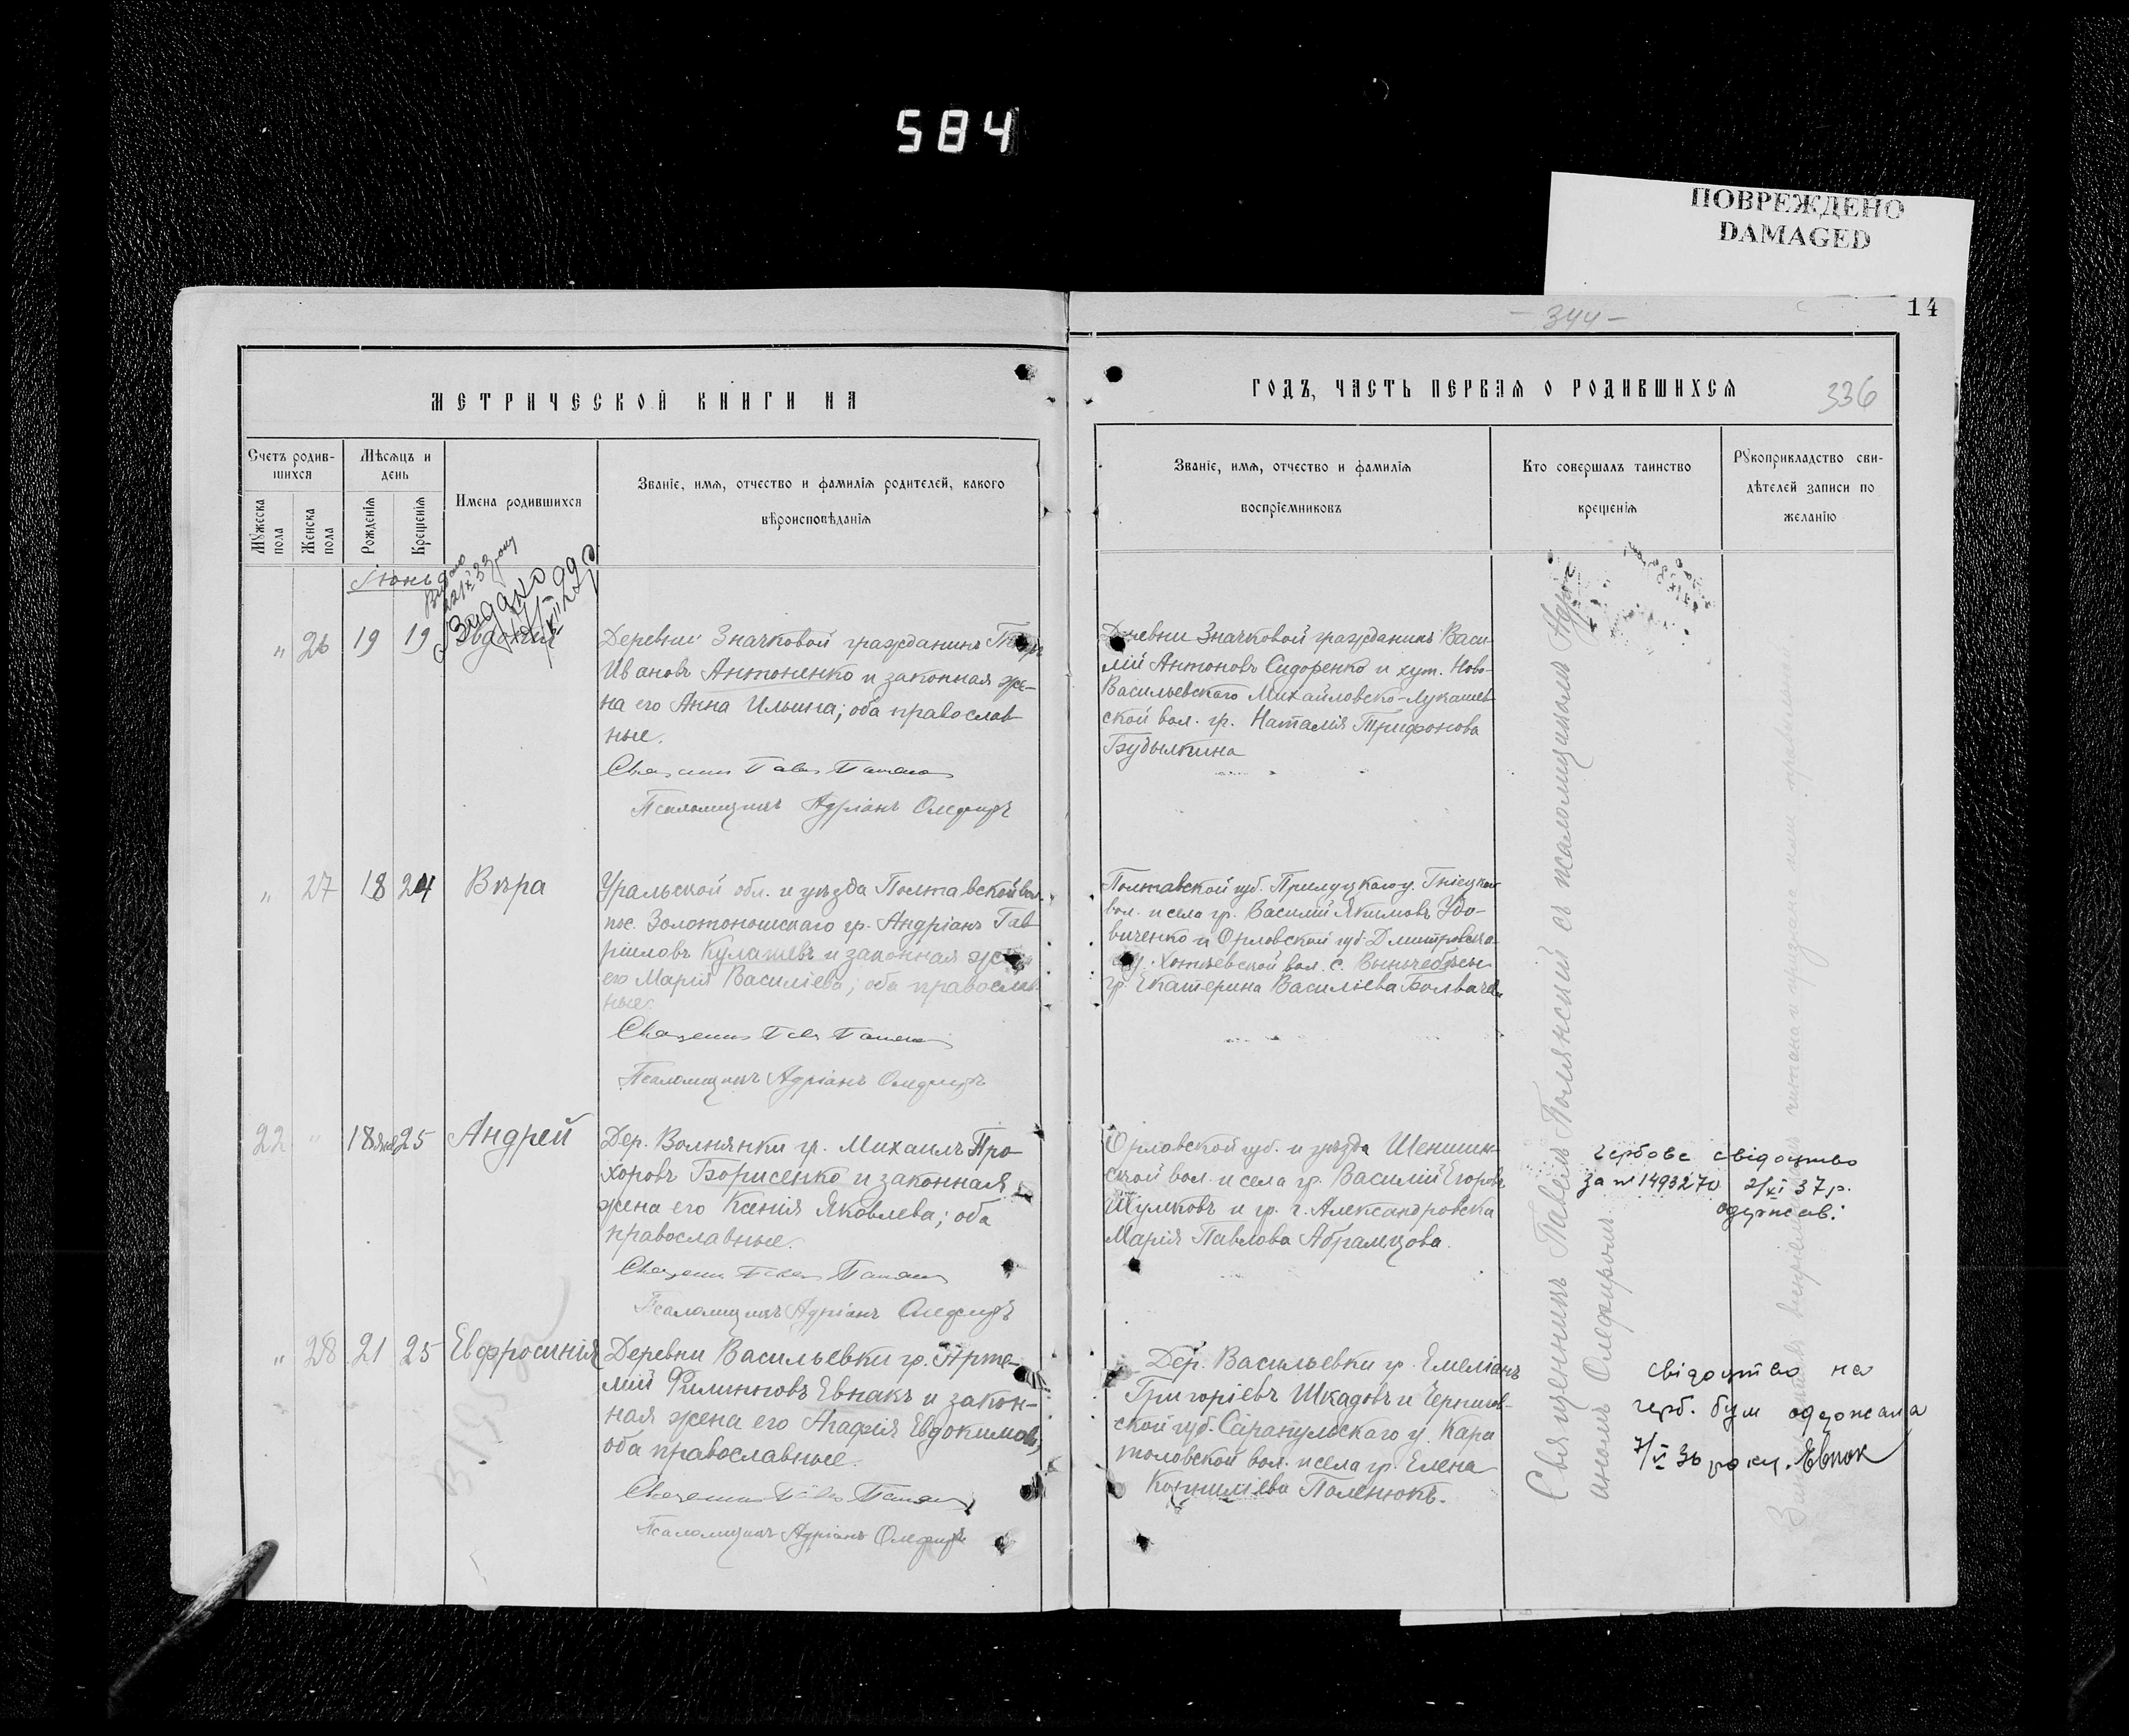 584
ПОВРЕЖДЕНО
DAMAGED
14
— 344 —
336
МЕТРИЧЕСКОЙ КНИГИ НА
ГОДЪ, ЧАСТЬ ПЕРВАЯ О РОДИВШИХСЯ
Счетъ родив-
шихся
Мужеска пола
Женска пола
Мѣсяцъ и
день
Рожденія
Крещенія
Имена родившихся
Званіе, имя, отчество и фамилія родителей, какого
вѣроисповѣданія
Званіе, имя, отчество и фамилія
воспріемниковъ
Кто совершалъ таинство
крещенія
Рукоприкладство сви-
дѣтелей записи по
желанію
Іюнь
" 26 19 19 Евдокія
Деревни Значковой гражданинъ
Ивановъ Антоненко и законная же-
на его Анна Ильина; оба православ-
ные.
Псаломщикъ Адріанъ Олефиръ
Деревни Значковой гражданинъ Васи-
лій Антоновъ Сидоренко и хут. Ново-
Васильевскаго Михайловско-Лукашев-
ской вол. гр. Наталія Трифонова
Будылкина
" 27 18 24 Вѣра
Уральской обл. и уѣзда Полтавской вол.
пос. Золотоношскаго гр. Андріанъ Гав-
риловъ Кулашевъ и законная жена
его Марія Василіева; оба православ-
ные
Псаломщикъ Адріанъ Олефиръ
Полтавской губ. Прилуцкаго у.
вол. и села гр. Василій Якимовъ Удо-
виченко и Орловской губ. Дмитровска-
го у. Хотѣевской вол. с.
гр. Екатерина Василіева
22 " 18 25 Андрей
Дер. Волнянки гр. Михаилъ Про-
хоровъ Борисенко и законная
жена его Ксенія Яковлева; оба
православные.
Псаломщикъ Адріанъ Олефиръ
Орловской губ. и уѣзда Шеншин-
ской вол. и села гр. Василій Егоровъ
Шулковъ и гр. г. Александровска
Марія Павлова Абрамцова.
гербове свідоцтво
за № 1493270 2/XI 37 р.
одержав:
" 28 21 25 Евфросинія
Деревни Васильевки гр. Арте-
мій Филипповъ Евнакъ и закон-
ная жена его Агафія Евдокимова,
оба православные.
Псаломщикъ Адріанъ Олефиръ
Дер. Васильевки гр. Емеліанъ
Григоріевъ Шкадовъ и Чернигов-
ской губ. у.
вол. и села гр. Елена
Корниліева Поленюкъ.
свідоцтво на
герб. бум одержала
7/VI 36 року.
Священникъ Павелъ Полянскій съ псаломщикомъ Адрі-
аномъ Олефиромъ